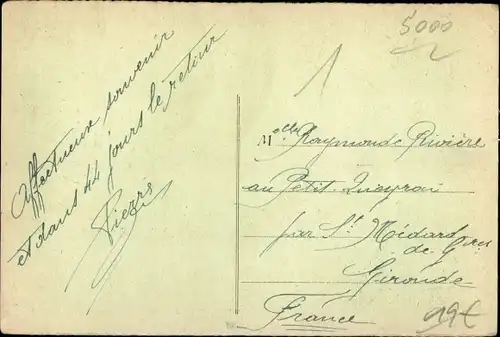 5000
1
Affectueux souvenir
et dans 44 jours le retour
Pierre
Melle Raymonde Rivière
au Petit Queyron
par St Médard
de Gres
Gironde
France
19€